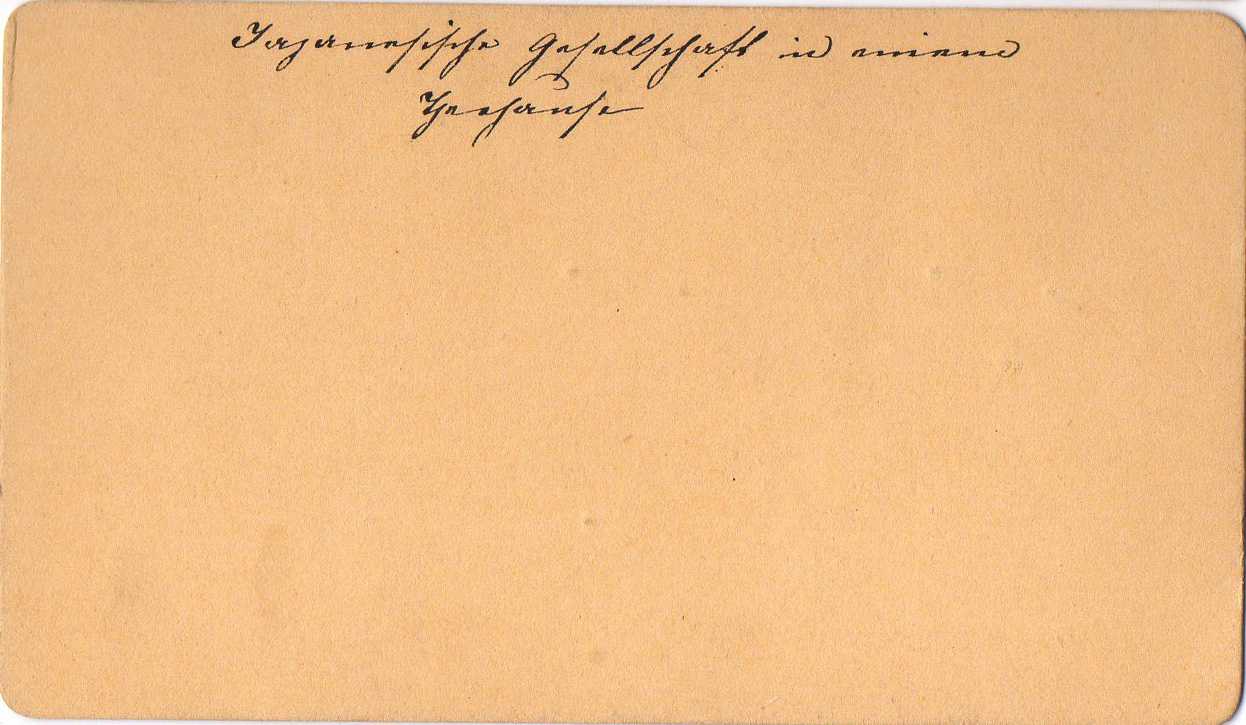 Japanesische Gesellschaft in einem
Theehause